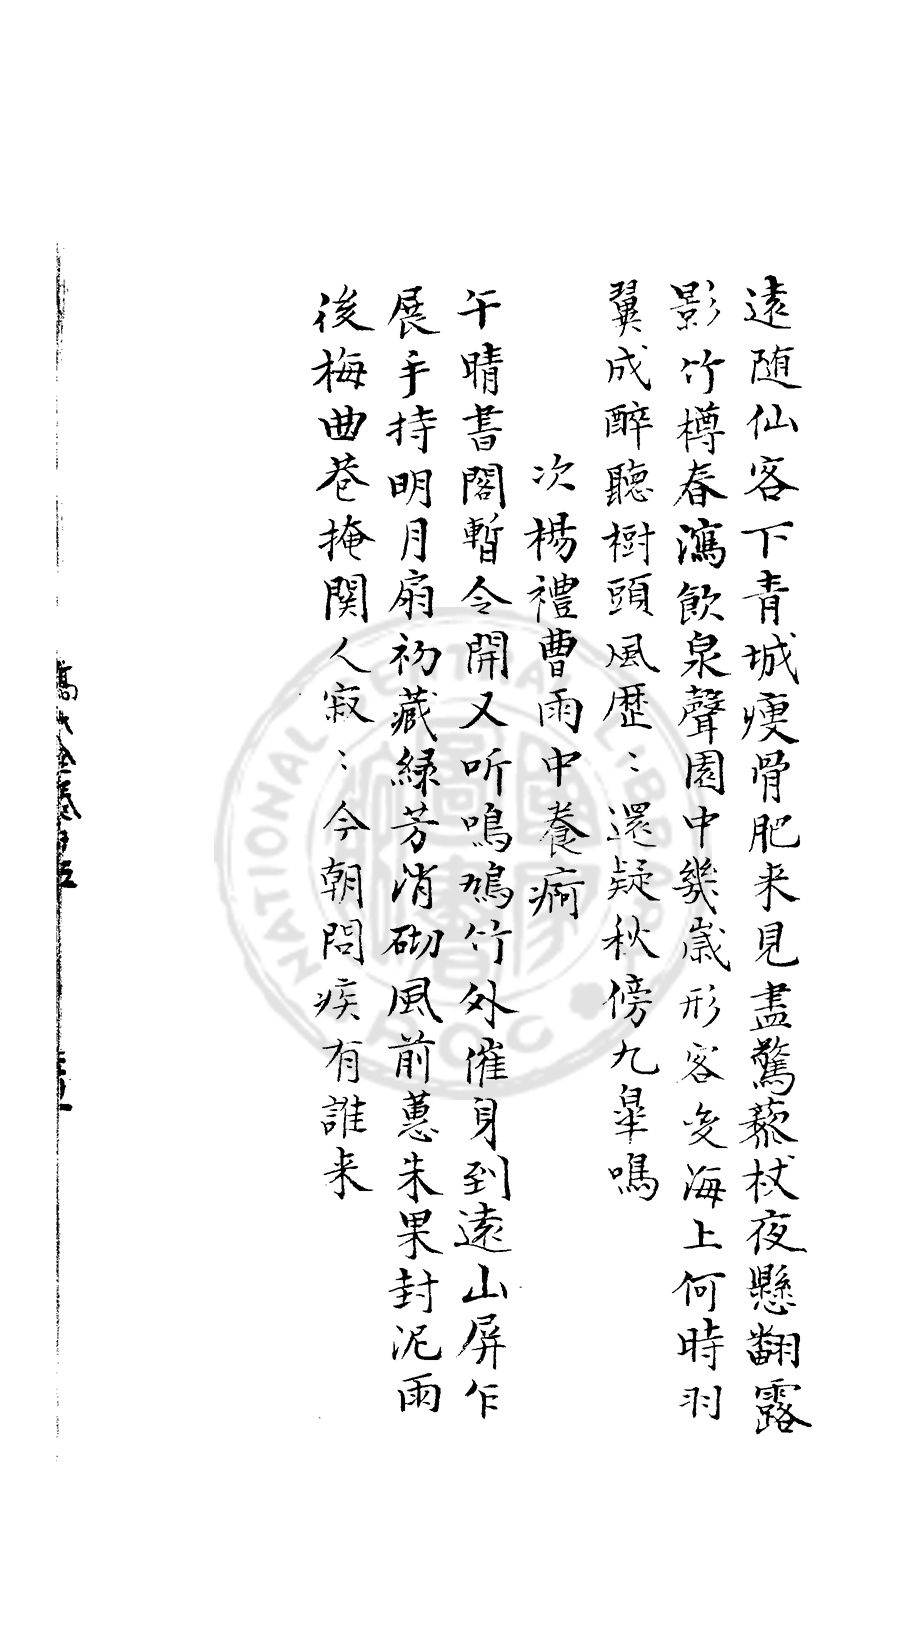 遠随仙客下青城瘦骨肥来見盡驚藜杖夜懸翻露
影竹樽春瀉飲泉聲園中幾歲形容变海上何時羽
翼成醉聽樹頭風歷〻還疑秋傍九皐鳴
次楊禮曹雨中養痾
午晴書閣暫令開又听鳴鳩竹外催身到遠山屏乍
展手持明月扇初藏綠芳消砌風前蕙朱果封泥雨
後梅曲巷掩関人寂〻今朝問疾有誰来
NATIONAL CENTRAL LIBRARY
R.O.C.